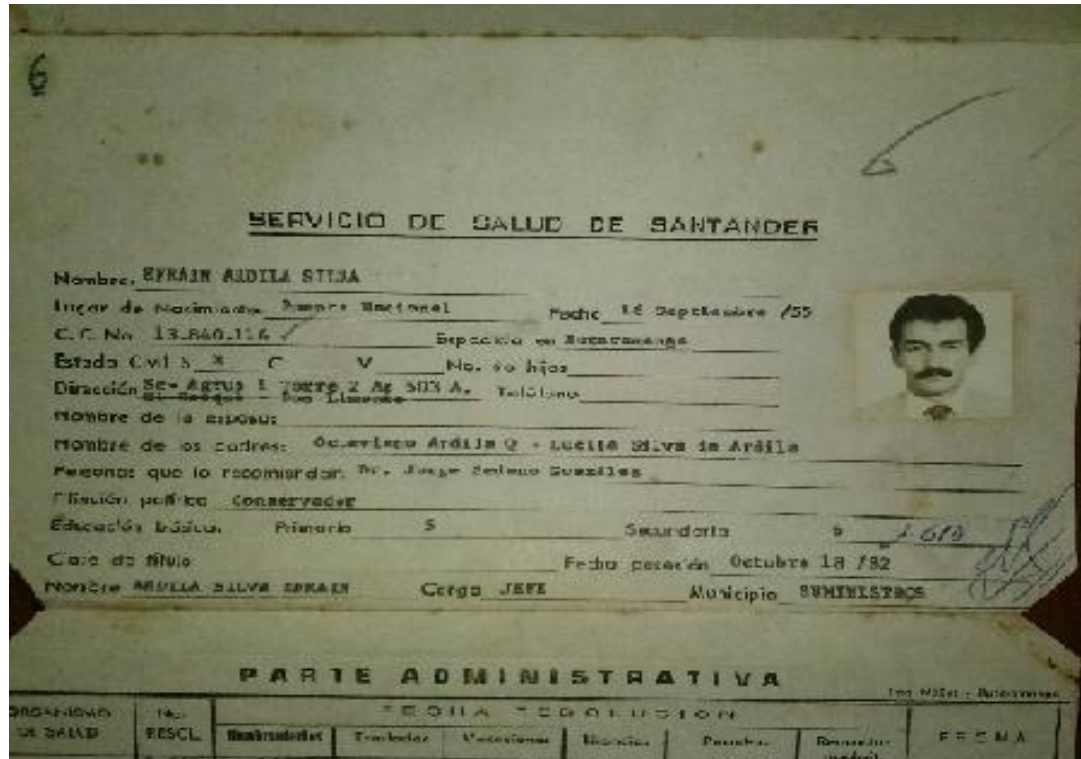 6
SERVICIO DE SALUD DE SANTANDER
Nombre. EFRAIN ARDILA SILVA
Lugar de Nacimiento Puente Nacional Fecha 16 Septiembre /55
C. C. No 13.840.116 Expedida en Bucaramanga
Estado Civil S X C V No. de hijos
Dirección Torre 2 Ap 503 A. Teléfono
El Bosque
Nombre de la esposa:
Nombre de los padres: Octaviano Ardila Q - Lucila Silva de Ardila
Personas que lo recomiendan. Dr. Jorge Sedano González
Filiación política Conservador
Educación básica. Primaria 5 Secundaria 6
Clase de título Fecha posesión Octubre 18 /82
Nombre ARDILA SILVA EFRAIN Cargo JEFE Municipio SUMINISTROS
PARTE ADMINISTRATIVA
ORGANISMO DE SALUD No. RESOL. FECHA RESOLUCION FECHA
Nombramientos Traslados Vacaciones Licencias